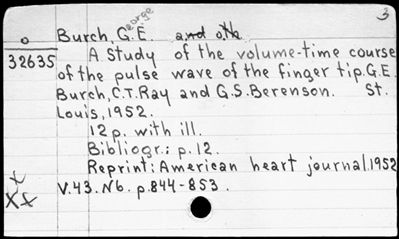 3
George
o Burch, G.E. and oth.
32635 A Study of the volume-time course
of the pulse wave of the finger tip. G.E.
Burch, C.T. Ray and G.S. Berenson. St.
Louis, 1952.
12 p. with ill.
Bibliogr.: p. 12.
Reprint: American heart journal. 1952
V.43. N6. p. 844-853.